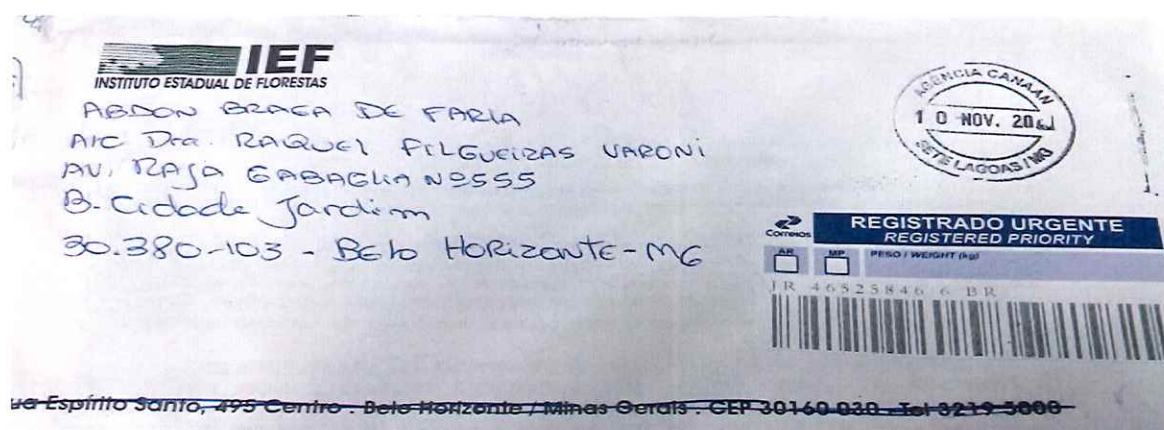 IEF
INSTITUTO ESTADUAL DE FLORESTAS
ABDON BRAGA DE FARIA
A/C Dra. RAQUEL FILGUEIRAS VARONI
AV. RAJA GABAGLIA Nº 555
B. Cidade Jardim
30.380-103 - Belo HORIZONTE - MG
AGENCIA CANAAN
10 NOV. 20
SETE LAGOAS / MG
Correios
REGISTRADO URGENTE
REGISTERED PRIORITY
AR
MP
PESO / WEIGHT (kg)
JR 46525846 6 BR
ua Espírito Santo, 495 Centro . Belo Horizonte / Minas Gerais . CEP 30160-030 - Tel 3219 5000